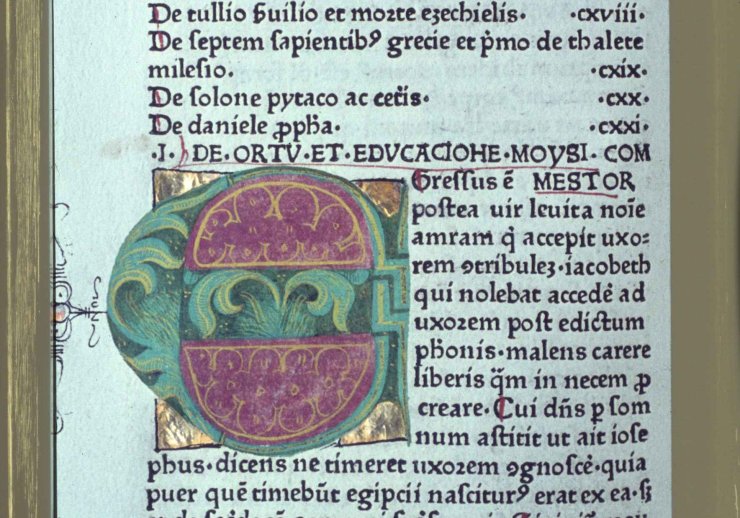 De tullio ẜuilio et morte ezechielis. .cxviii.
De septem sapientibꝰ grecie et p̃mo de thalete
milesio. .cxix.
De solone pytaco ac cet̃is. .cxx.
De daniele ꝓpħa. .cxxi.
.I. DE.ORTV.ET.EDVCACIOHE.MOYSI. COM
Gressus ē MESTOR
postea uir leuita noīe
amram q̇ accepit uxo=
rem ꝯtribuleʒ.iacobeth
qui nolebat accedẻ ad
uxorem post edictum
pħonis.malens carere
liberis q̃m in necem ꝓ
creare. Cui dñs p som
num astitit ut ait iose
phus.dicens ne timeret uxorem ꝯgnoscẻ.quia
puer quē timebūt egipcii nasciturꝰ erat ex ea.sʒ